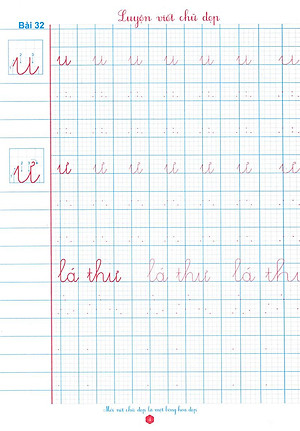 Luyện viết chữ đẹp
Bài 32
u u u u u u u u
ư ư ư ư ư ư ư ư
lá thư lá thư lá thư
Mỗi nét chữ đẹp là một bông hoa đẹp